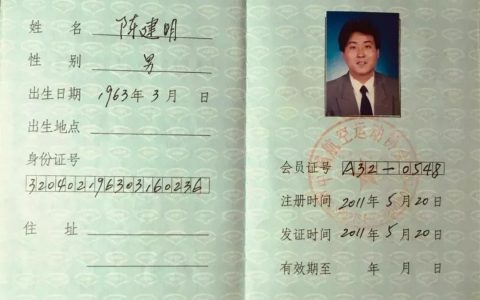 姓 名 陈建明
性 别 男
出生日期 1963年3月 日
出生地点
身份证号
32040219630316023A
住 址
会员证号 A32-0548
注册时间 2011年5月20日
发证时间 2011年5月20日
有效期至 年 月 日
航空运动协会